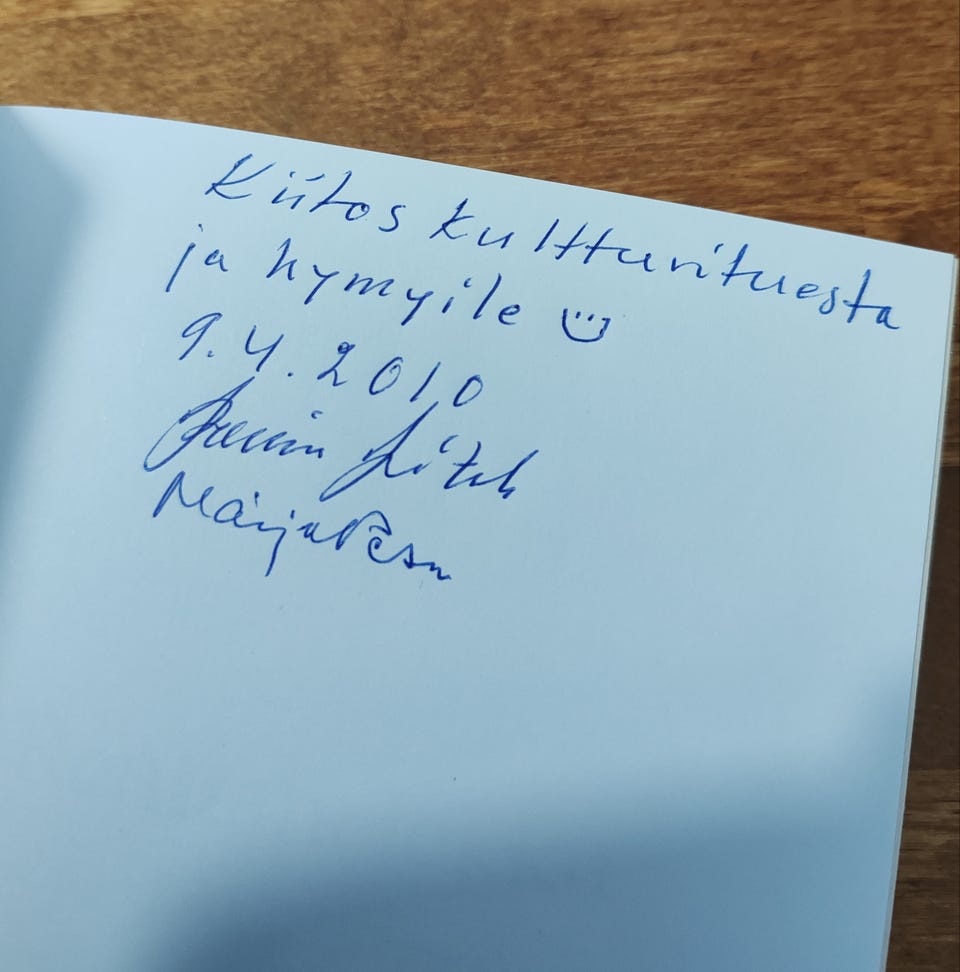 Kiitos kultturituesta
ja hymyile
9.4.2010
Marja